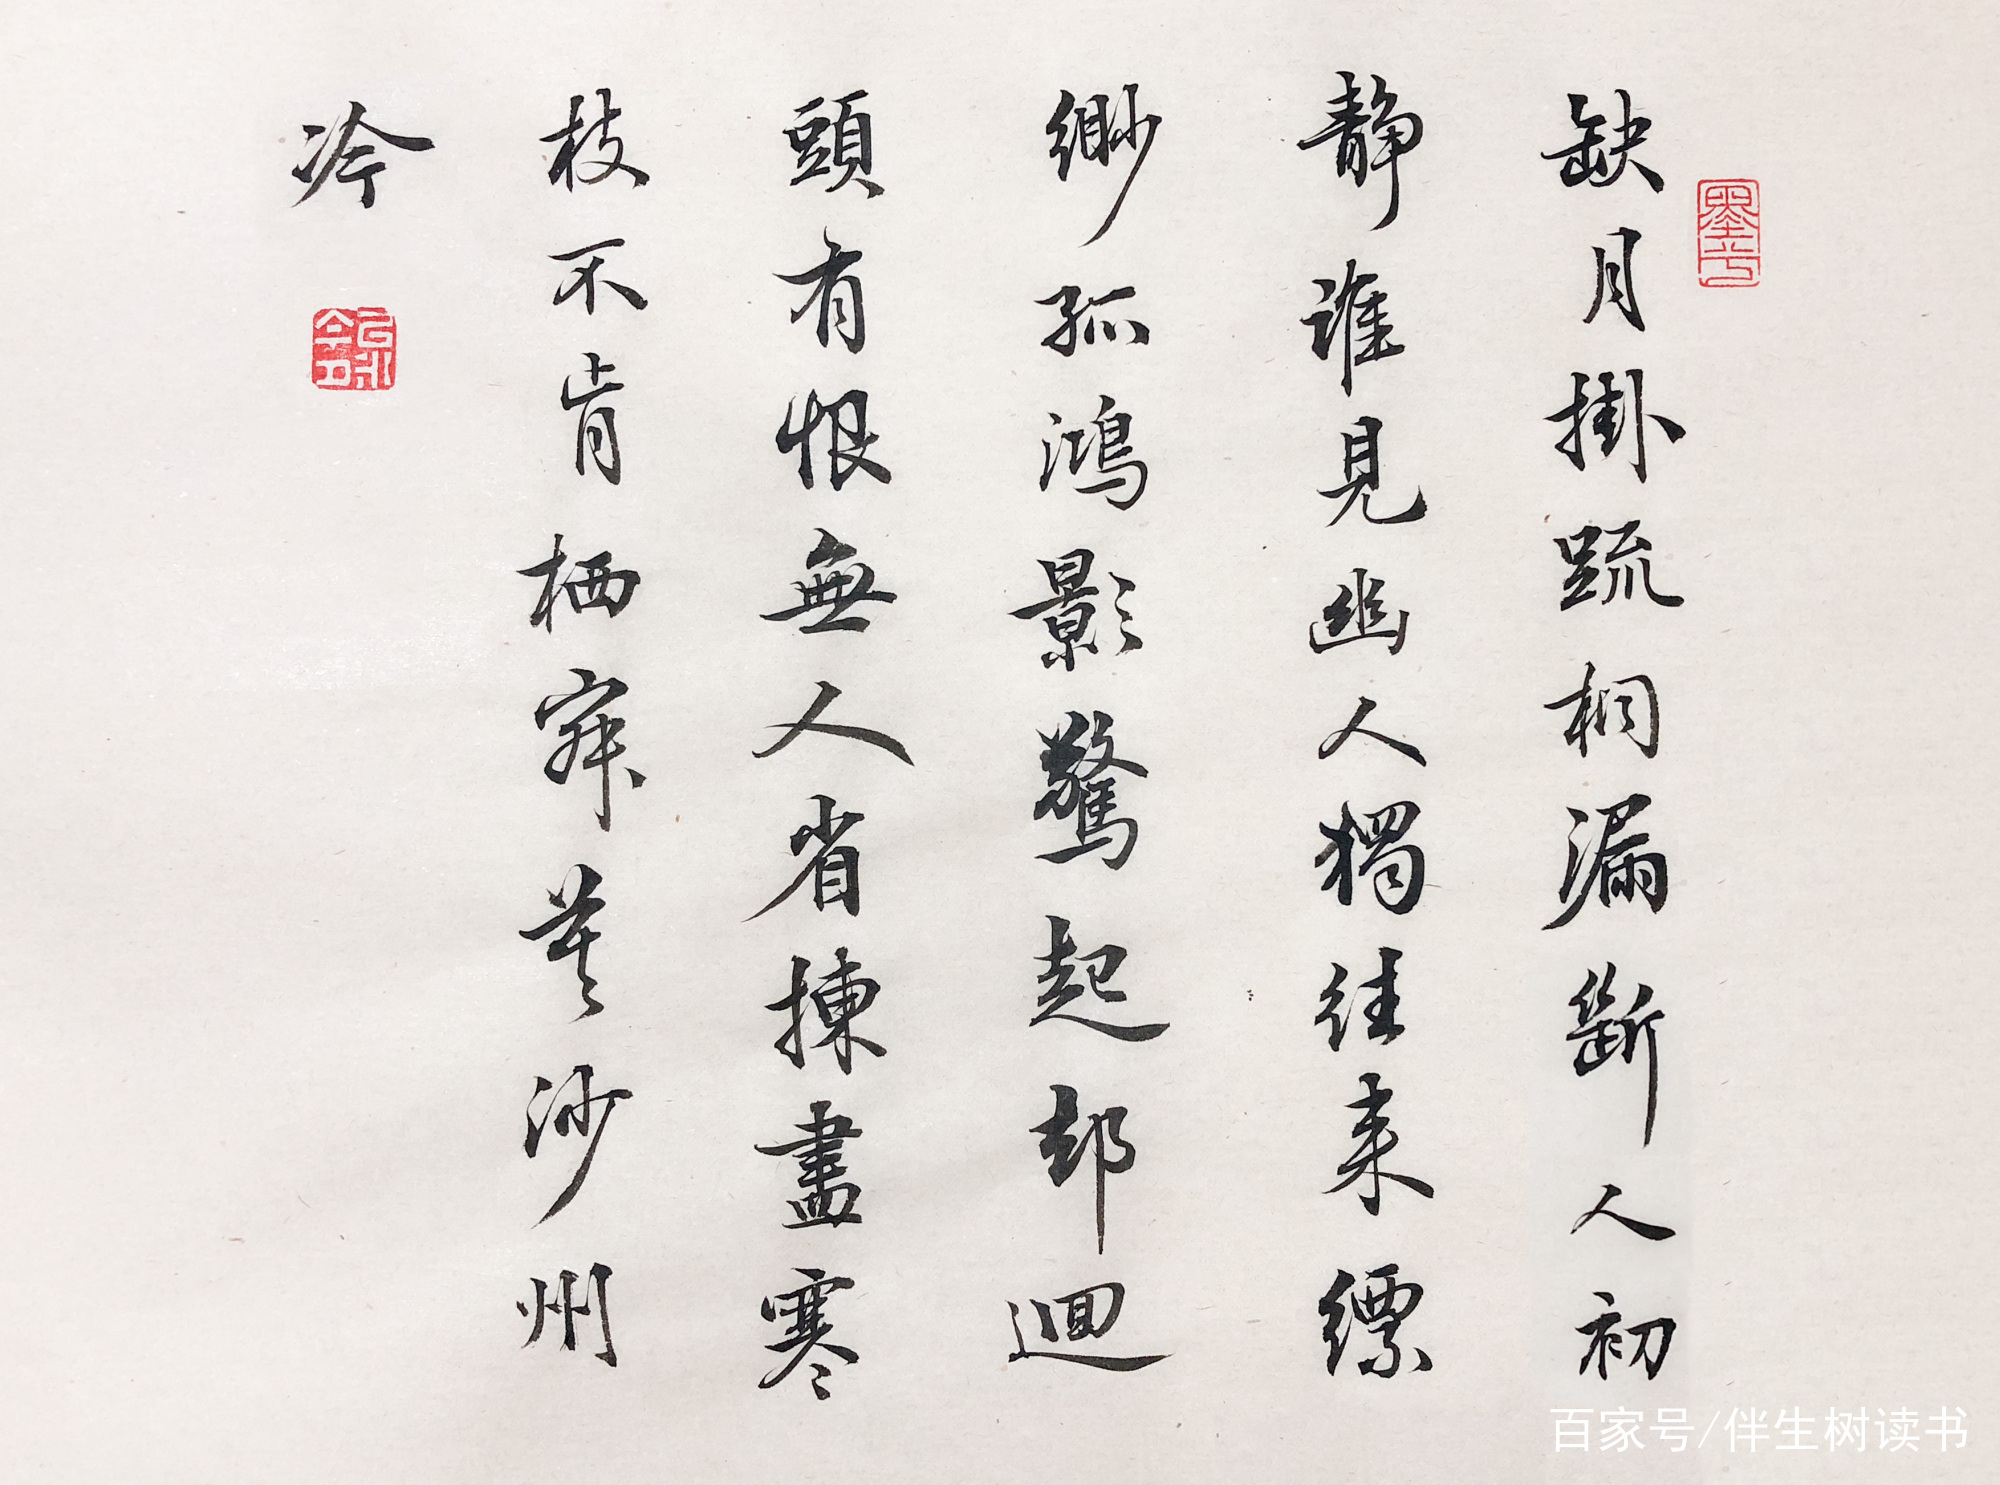 缺月掛疏桐漏斷人初
靜誰見幽人獨往来縹
緲孤鴻影驚起却迴
頭有恨無人省揀盡寒
枝不肯栖寂莫沙州
冷
百家号/伴生树读书